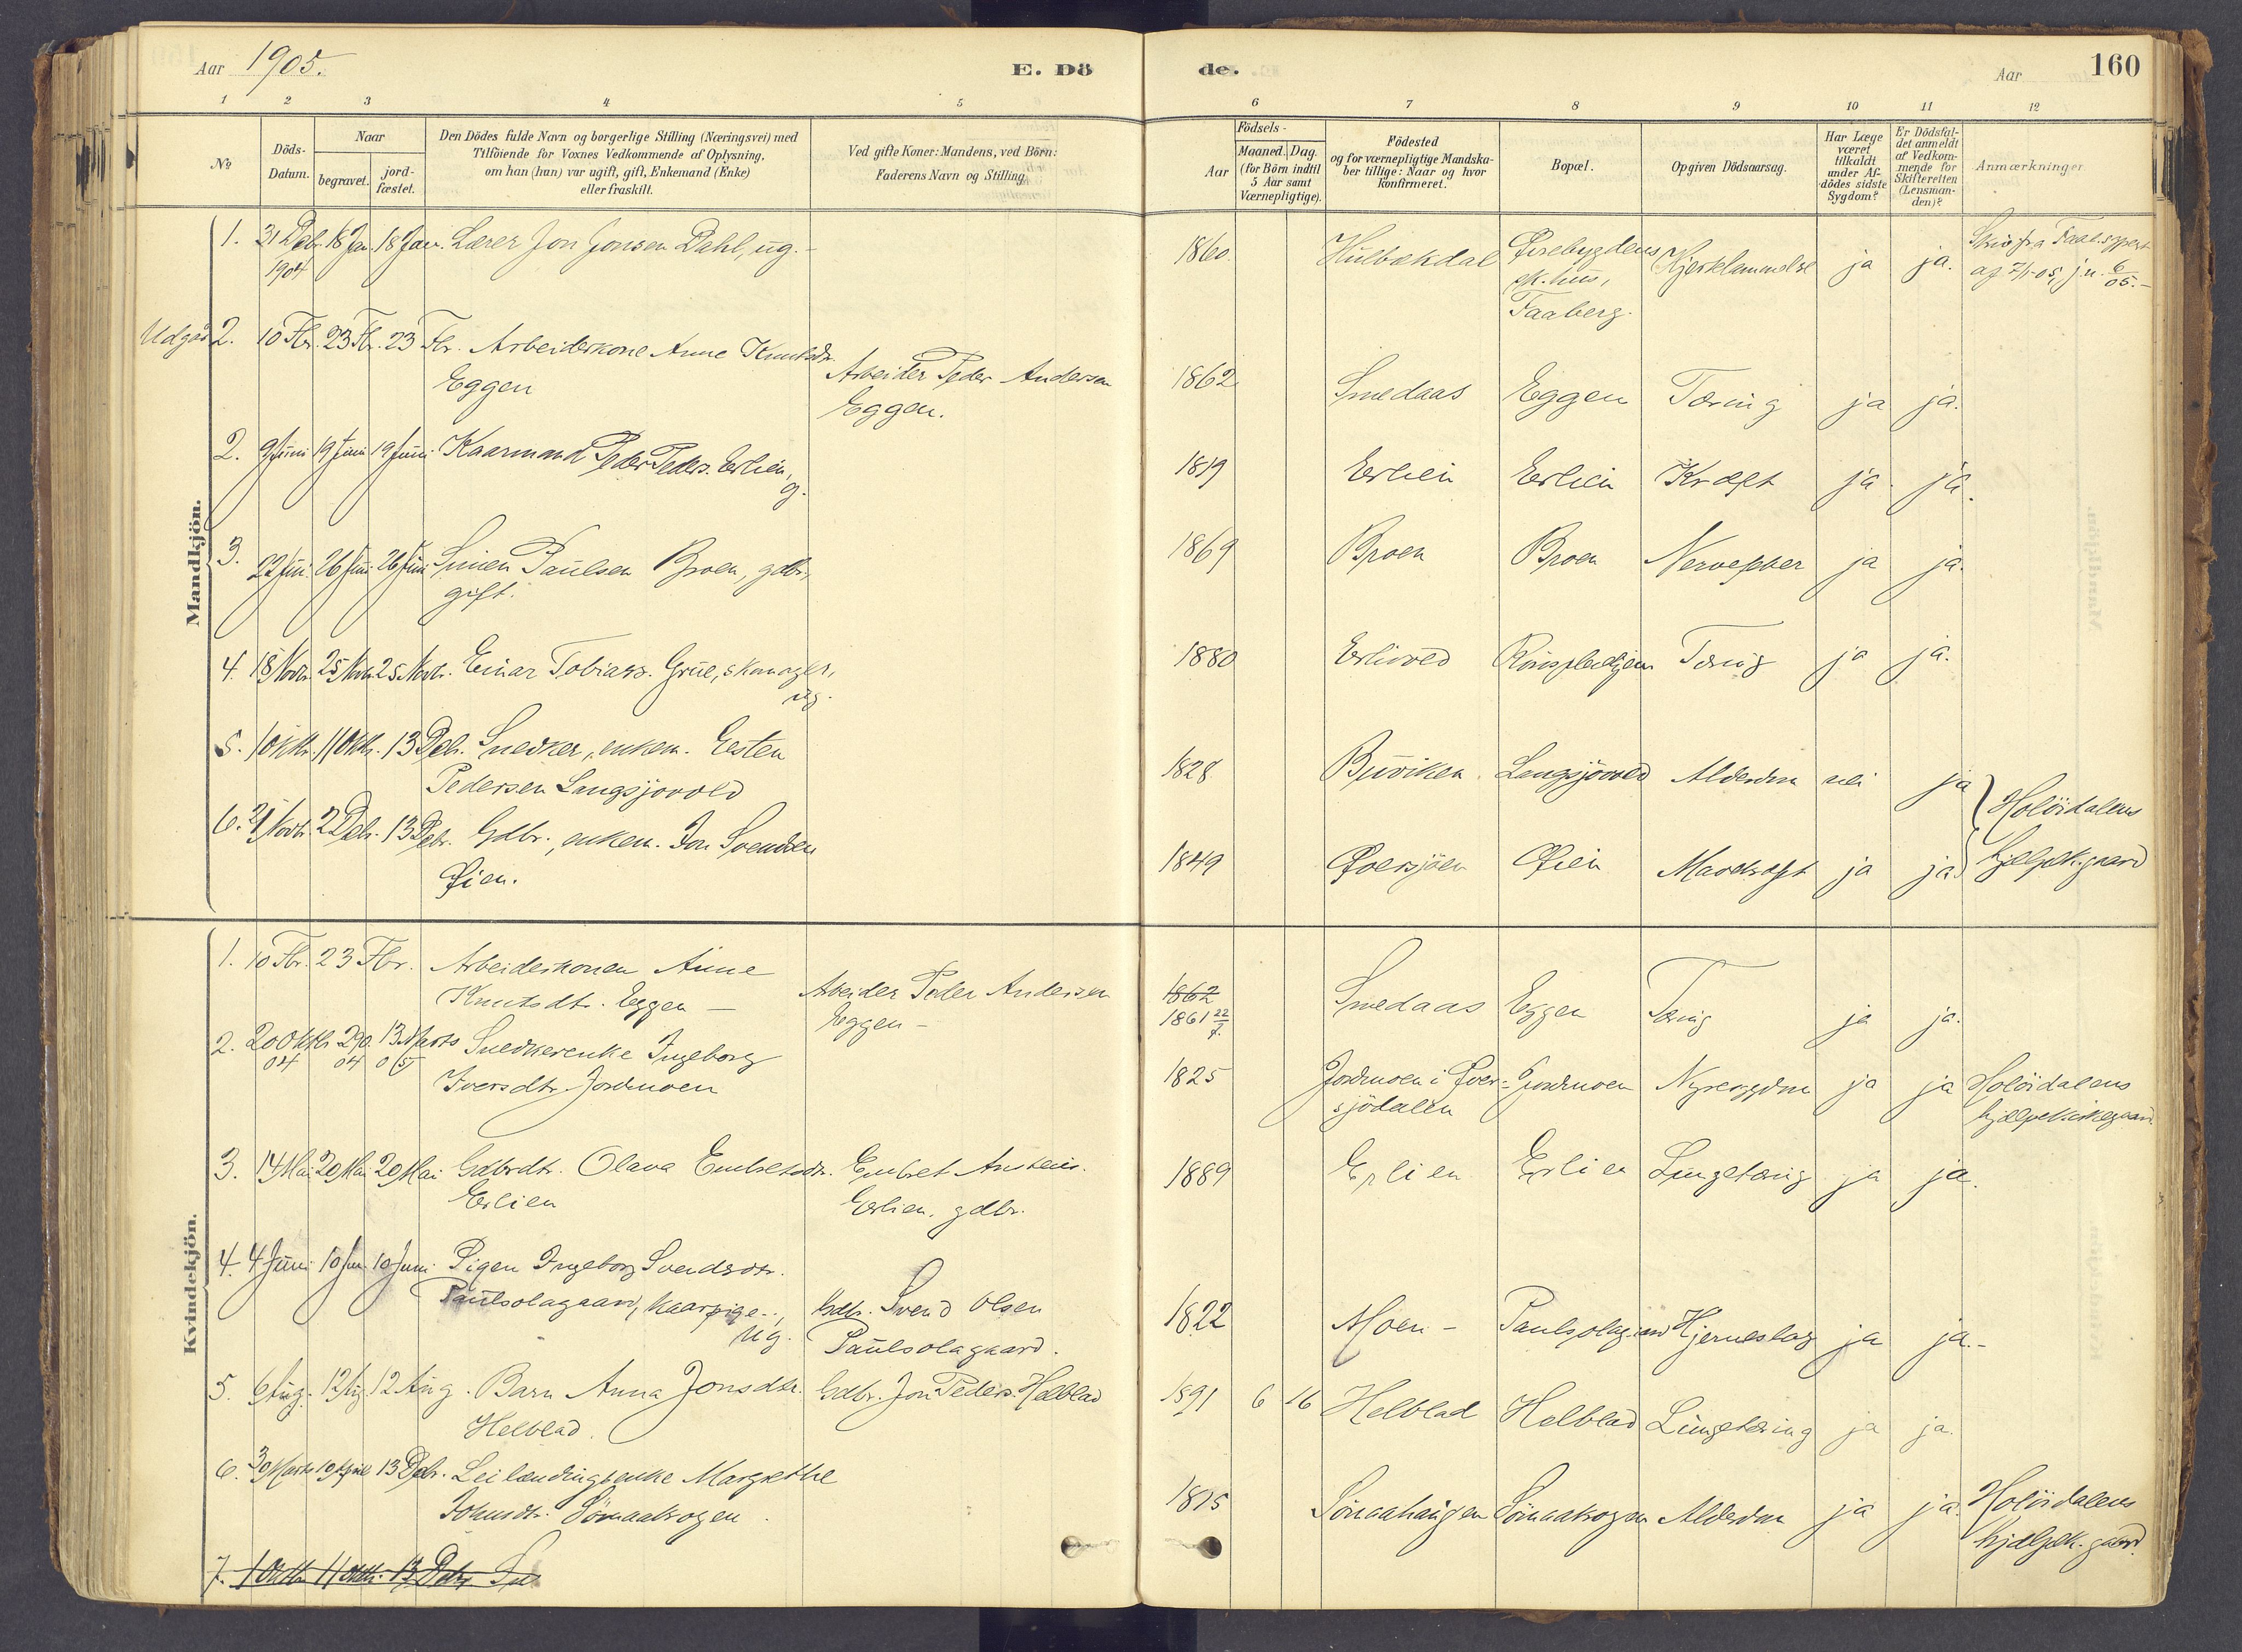 Aar 1905.
E. Dö
de.
Aar
160
1 2 3 4 5 6 7 8 9 10 11 12
No
Döds-
Datum.
Naar
begravet.
jord-
fæstet.
Den Dödes fulde Navn og borgerlige Stilling (Næringsvei) med
Tilföiende for Voxnes Vedkommende af Oplysning,
om han (hun) var ugift, gift, Enkemand (Enke)
eller fraskilt.
Ved gifte Koner: Mandens, ved Börn:
Faderens Navn og Stilling.
Födsels-
Aar
Maaned. Dag.
(for Börn indtil
5 Aar samt
Værnepligtige).
Födested
og for værnepligtige Mandska-
ber tillige: Naar og hvor
konfirmeret.
Bopæl.
Opgiven Dödsaarsag.
Har Læge
været
tilkaldt
under Af-
dödes sidste
Sygdom?
Er Dödsfal-
det anmeldt
af Vedkom-
mende for
Skifteretten
(Lensman-
den)?
Anmærkninger
Mandkjön.
1. 31 Deb. 18 Jan. 18 Jan. Lærer Jon Jonsen Dahl, ug. -
1904
1860 Hulbækdal
sk. hus,
Faaberg.
Hjertelammelse ja ja.
Skiv. fra
af 7/1-05, j.n. 6/05.-
Udgår 2. 10 Fbr. 23 Fbr. 23 Fbr. Arbeiderkone Anne Knutsdtr.
Eggen
Arbeider Peder Andersen
Eggen.
1862 Smedaas Eggen Tæring ja ja.
2. 9 Juni 19 Juni 19 Juni Kaarmand Peder Peders. Erlien,
g.
1819 Erlien Erlien Kræft ja ja.
3. 22 Juni 26 Juni 26 Juni Simen Paulsen Broen, gdbr.,
gift.
1869 Broen Broen Nervefeber ja ja.
4. 18 Novbr. 25 Novbr. 25 Novbr. Einar Tobiass. Grue, skomager,
ug.
1880 Erlivold Tæring ja ja.
5. 1 Oktbr. 11 Oktbr. 13 Debr. Snedker, enkem. Esten
Pedersen Langsjøvold
1828 Buviken Langsjøvold Alderdom nei ja
6. 21 Novbr. 2 Debr. 13 Debr. Gdbr., enkem. Jon Svendsen
Øien.
1849 Øversjøen Øien Mavekræft ja ja
Holöidalens
hjælpek.gaard
Kvindekjön.
1. 10 Fbr. 23 Fbr. Arbeiderkonen Anne
Knutsdtr. Eggen -
Arbeider Peder Andersen
Eggen -
1862
1861 22/7
Smedaas Eggen Tæring ja ja.
2. 20 Oktbr. 29 o. 13 Marts Snedkerenke Ingeborg
04 04 05
Iversdtr. Jordmoen
1825 Jordmoen i Øver- Jordmoen Nyresygdom ja ja Holöidalens
sjödalen
hjælpekirkegaard
3. 14 Mai 20 Mai 20 Mai Gdbrdtr. Olava Embretsdtr. Embret Austeins.
Erlien
Erlien, gdbr.
1889 Erlien Erlien Lungetæring ja ja.
4. 4 Juni 10 Juni 10 Juni Pigen Ingeborg Svendsdtr.
Paulsolagaard, kaarpige,
ug.
Gdbr. Svend Olsen
Paulsolagaard.
1822 Moen - Paulsolagaard Hjerneslag ja ja. -
5. 6 Aug. 12 Aug. 12 Aug. Barn Anna Jonsdtr. Gdbr. Jon Peders. Helblad
Helblad.
1891 6 16 Helblad Helblad Lungetæring ja ja.
6. 30 Marts 10 April 13 Debr. Leilændingsenke Margrethe
Johnsdtr. Sömaakrogen.
1815 Sömaahaugen Sömaakrogen Alderdom ja ja. Holöidalens
hjælpek.gaard.
7. 1 Oktbr. 11 Oktbr. 13 Debr. Sn